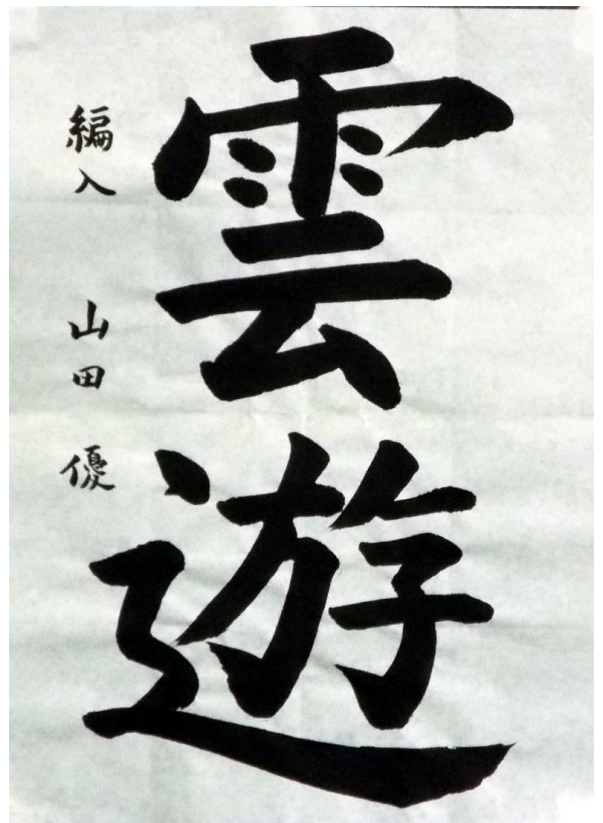 雲遊
編入 山田 優